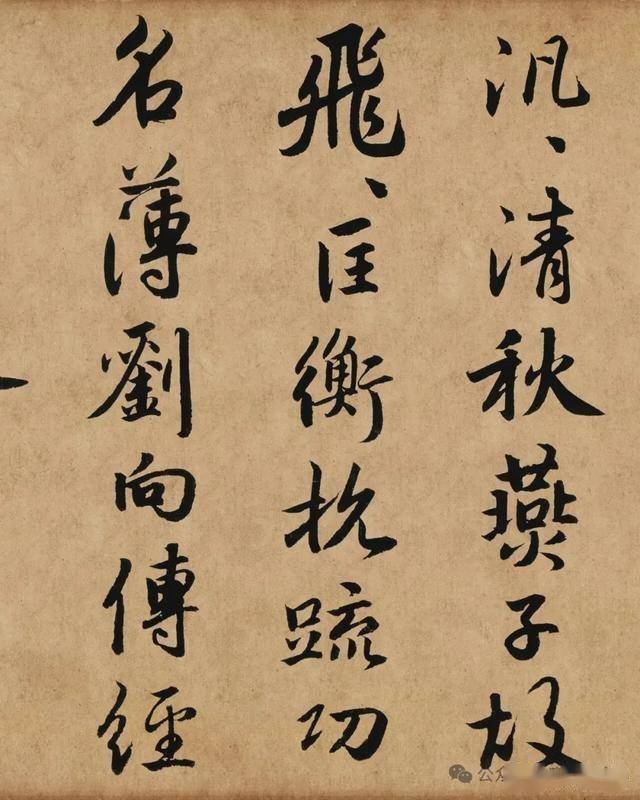 汎、清秋燕子故
飛、匡衡抗疏功
名薄劉向傳經
公众